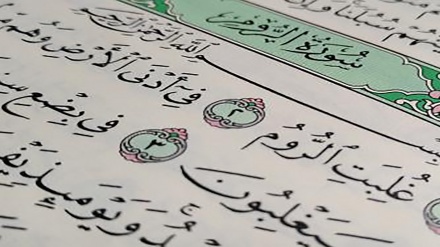 سُورَةُ الرُّومِ
بِسْمِ اللَّهِ الرَّحْمَٰنِ الرَّحِيمِ
غُلِبَتِ الرُّومُ ٢ فِي أَدْنَى الْأَرْضِ وَهُم
سَيَغْلِبُونَ ٣ فِي بِضْعِ
وَيَوْمَئِذٍ